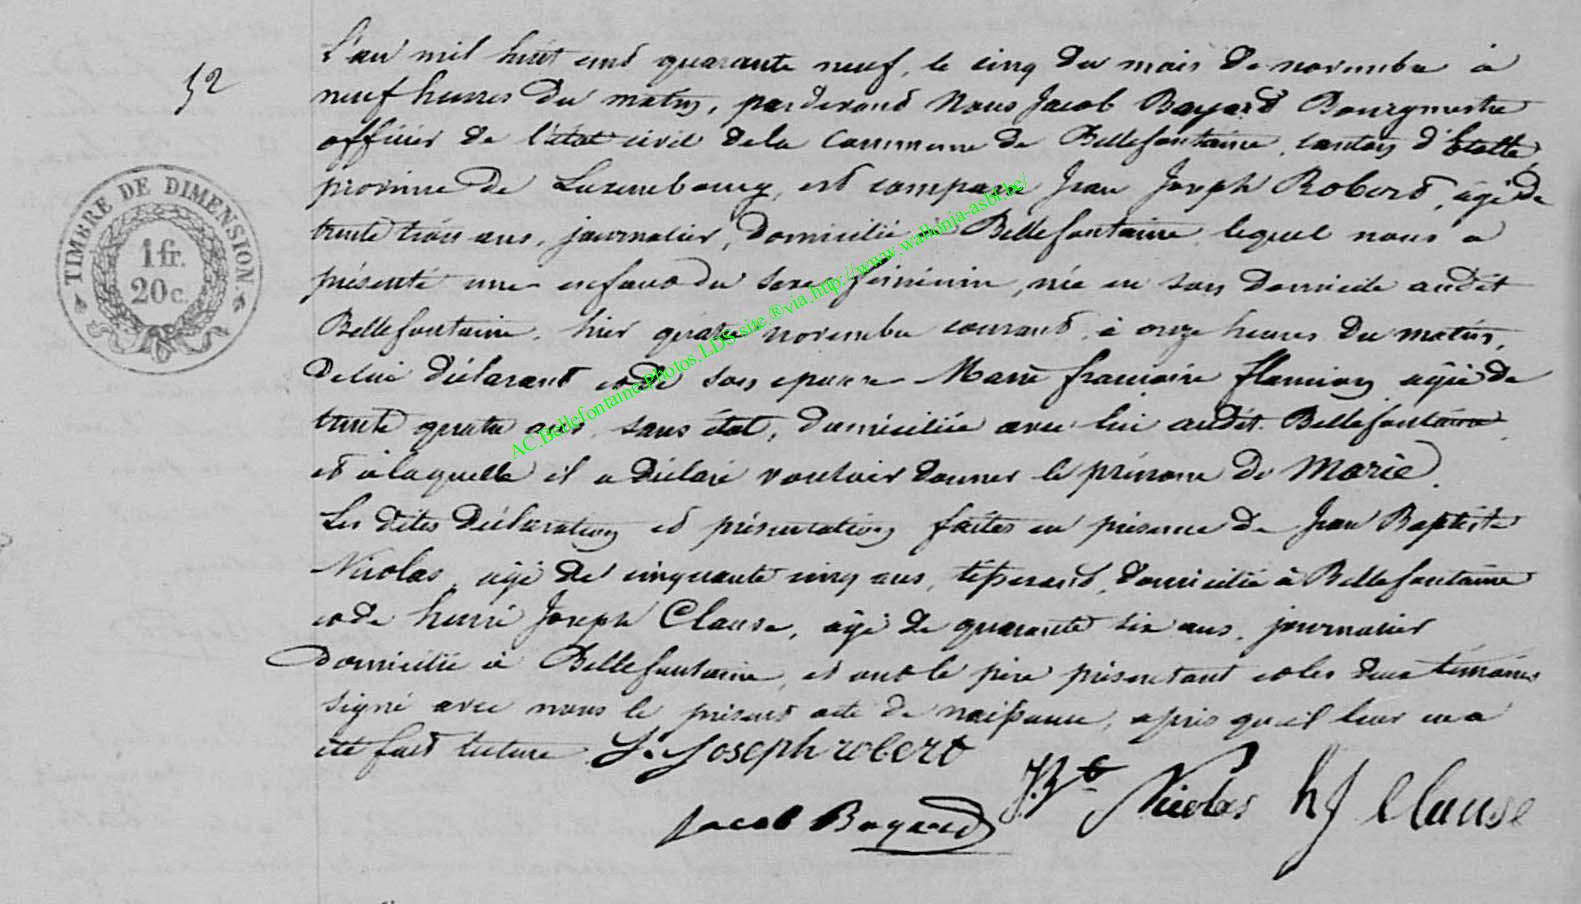 52
L'an mil huit cent quarante neuf, le cinq du mois de novembre à
neuf heures du matin, pardevant Nous Jacob Bayard Bourgmestre
officier de l'état civil de la Commune de Bellefontaine, canton d'Etalle,
province de Luxembourg, est comparu Jean Joseph Robert, âgé de
trente trois ans, journalier, domicilié à Bellefontaine lequel nous a
présenté une enfant du sexe féminin, née en son domicile audit
Bellefontaine, hier quatre novembre courant, à onze heures du matin,
de lui déclarant et de son épouse Marie françoise flamion agée de
trente quatre ans, sans état, domiciliée avec lui audit Bellefontaine
et à laquelle il a déclaré vouloir donner le prénom de Marie.
Les dites déclaration et présentation faites en présence de Jean Baptiste
Nicolas, âgé de cinquante cinq ans, tisserand, domicilié à Bellefontaine
et de henri Joseph Clause, âgé de quarante six ans, journalier
domicilié à Bellefontaine, et ont le père présentant et les deux témoins
signé avec nous le présent acte de naissance, après qu'il leur en a
été fait lecture. J. Joseph robert
J.Bte Nicolas h J Clause
Jacob Bayard
TIMBRE DE DIMENSION
1 fr.
20 c.
AC.Bellefontaine.Photos.LDS-site ®via.http://www.wallonia-asbl.be/